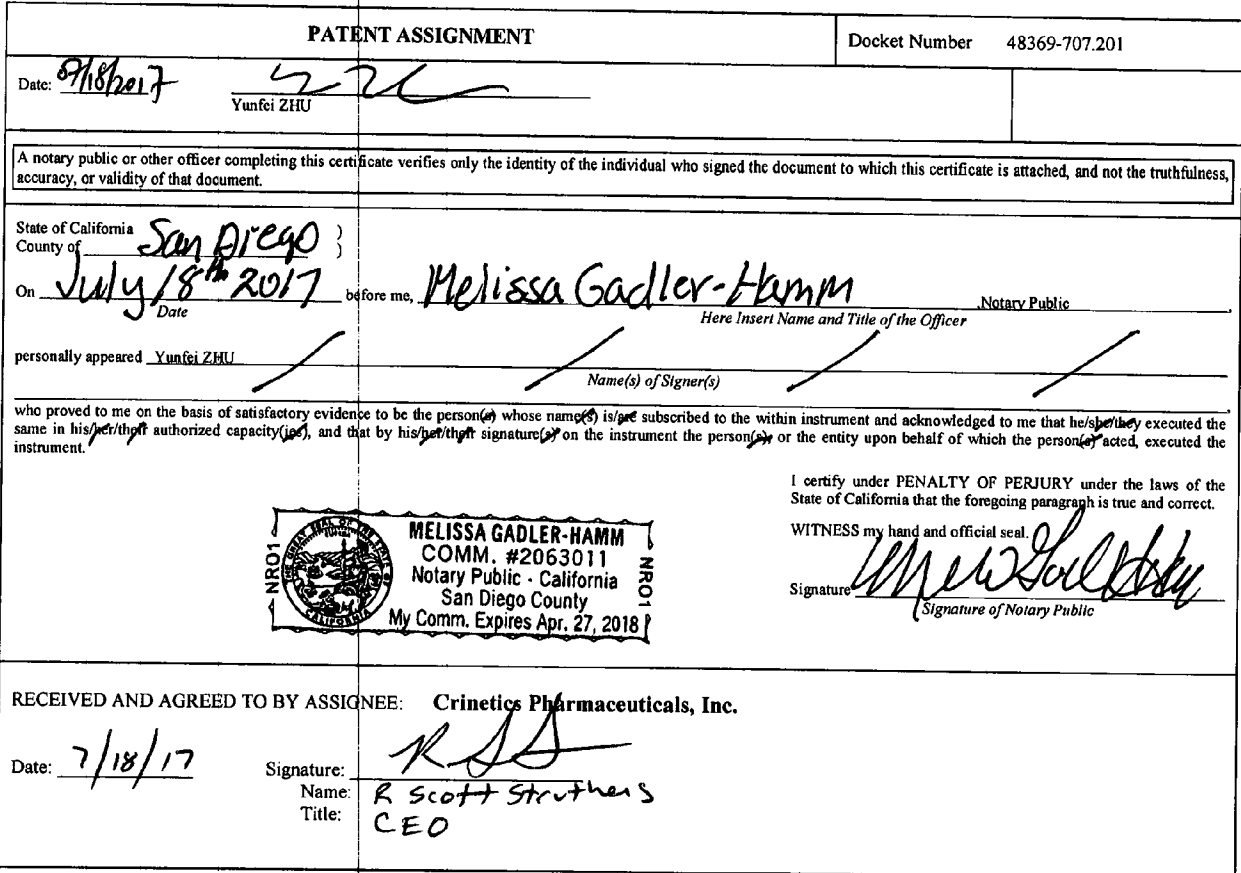 PATENT ASSIGNMENT
Docket Number 48369-707.201
Date: 07/18/2017
Yunfei ZHU
A notary public or other officer completing this certificate verifies only the identity of the individual who signed the document to which this certificate is attached, and not the truthfulness,
accuracy, or validity of that document.
State of California )
County of San Diego )
On July 18th 2017 before me, Melissa Gadler-Hamm ,Notary Public,
Date
Here Insert Name and Title of the Officer
personally appeared Yunfei ZHU
Name(s) of Signer(s)
who proved to me on the basis of satisfactory evidence to be the person(s) whose name(s) is/are subscribed to the within instrument and acknowledged to me that he/she/they executed the
same in his/her/their authorized capacity(ies), and that by his/her/their signature(s) on the instrument the person(s), or the entity upon behalf of which the person(s) acted, executed the
instrument.
I certify under PENALTY OF PERJURY under the laws of the
State of California that the foregoing paragraph is true and correct.
WITNESS my hand and official seal.
Signature
Signature of Notary Public
NRO1
MELISSA GADLER-HAMM
COMM. #2063011
Notary Public - California
San Diego County
My Comm. Expires Apr. 27, 2018
NRO1
RECEIVED AND AGREED TO BY ASSIGNEE: Crinetics Pharmaceuticals, Inc.
Date: 7/18/17
Signature:
Name: R Scott Struthers
Title: CEO